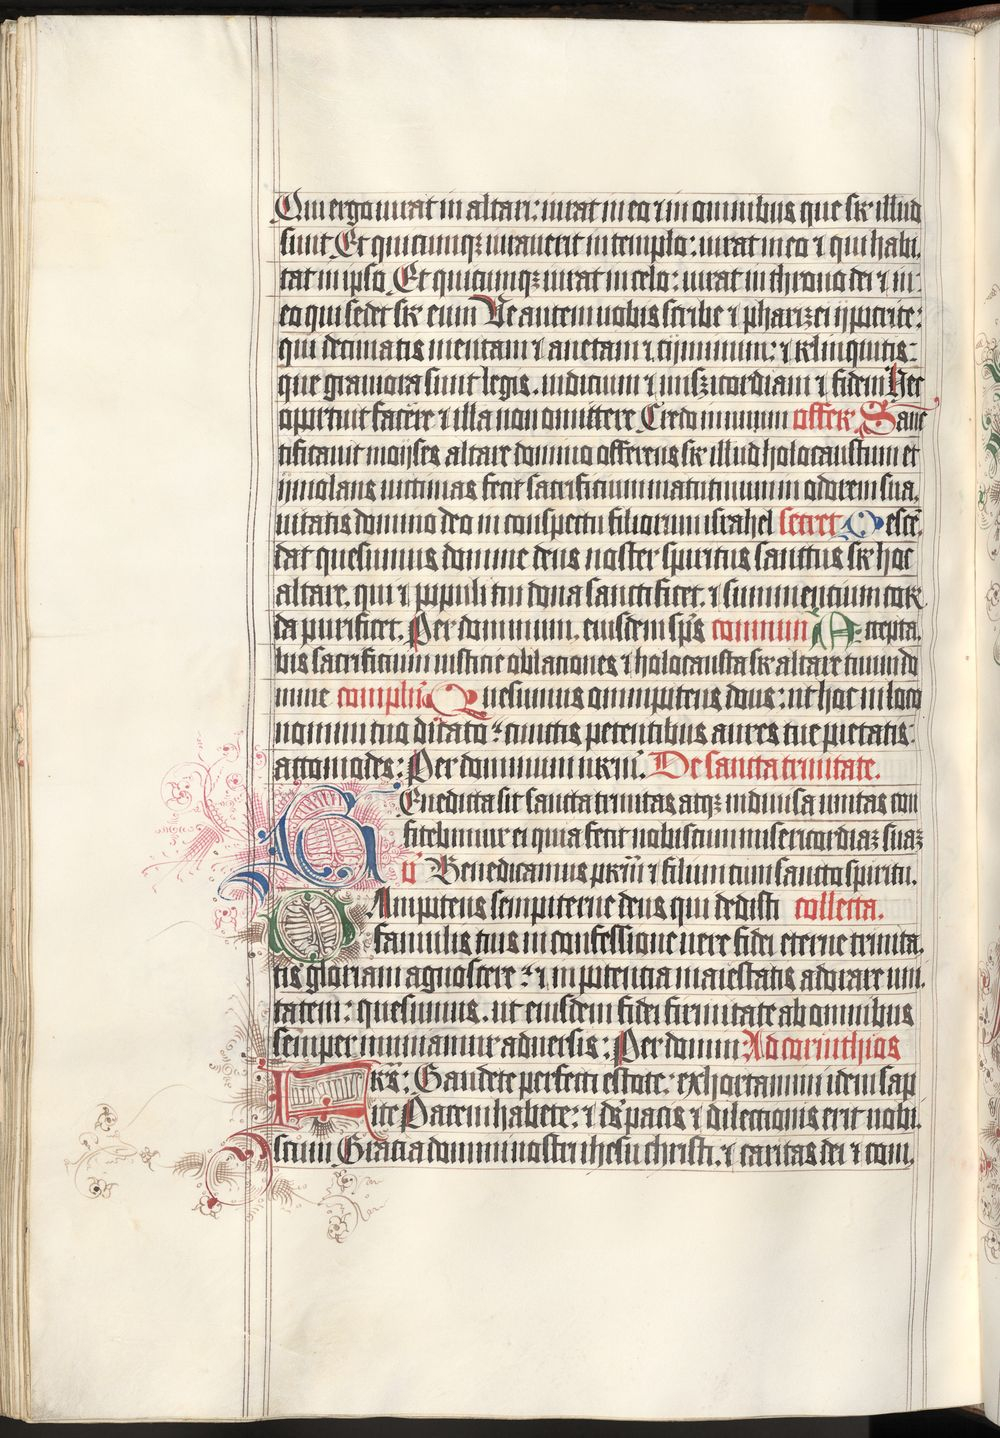 Qui ergo iurat in altari: iurat in eo ⁊ in omnibus que sr illud
sunt Et quicumqꝫ iurauerit in templo: iurat in eo ⁊ qui habi,
tat in ipso Et quicumqꝫ iurat in celo: iurat in throno dei ⁊ in
eo qui sedet sr eum Ve autem uobis scribe ⁊ pharizei ijpocrite:
qui decimatis mentam ⁊ anetam ⁊ cijminum: ⁊ relinquitis:
que grauiora sunt legis. iudicium ⁊ misꝫicordiam ⁊ fidem Hec
oportuit facere ⁊ illa non omittere Credo in unum offer. Sanc
tificauit moijses altare domino offerens sr illud holocaustum et
ijmolans uictimas fecit sacrificium matutinum in odorem sua,
uitatis domino deo in conspectu filiorum israhel secret Desce
dat quesumus domine deus noster spiritus sanctus sr hoc
altare. qui ⁊ populi tui dona sanctificet. ⁊ summencium cor
da purificet. Per dominum. eiusdem sps commun Accepta,
bis sacrificium iusticie oblaciones ⁊ holocausta sr altare tuum do
mine complen Quesumus omnipotens deus: ut hoc in loco
nomini tuo dicato: cunctis petentibus aures tue pietatis:
accomodes: Per dominum nrm. De sancta trinitate.
Benedicta sit sancta trinitas atqꝫ indiuisa unitas con
fitebimur ei quia fecit nobiscum misericordiaꝫ suaꝫ
v Benedicamus prm ⁊ filium cum sancto spiritu.
Omipotens sempiterne deus qui dedisti collecta.
famulis tuis in confessione uere fidei eterne trinita,
tis gloriam agnoscere: ⁊ in potencia maiestatis adorare uni,
tatem: quesumus. ut eiusdem fidei firmitate ab omnibus
semper muniamur aduersis: Per domin: Ad corinthios
Frs: Gaudete perfecti estote: exhortamini idem sap
ite Pacem habete: ⁊ ds pacis ⁊ dilectionis erit uobi,
scum Gracia domini nostri ihesu christi. ⁊ caritas dei ⁊ com,